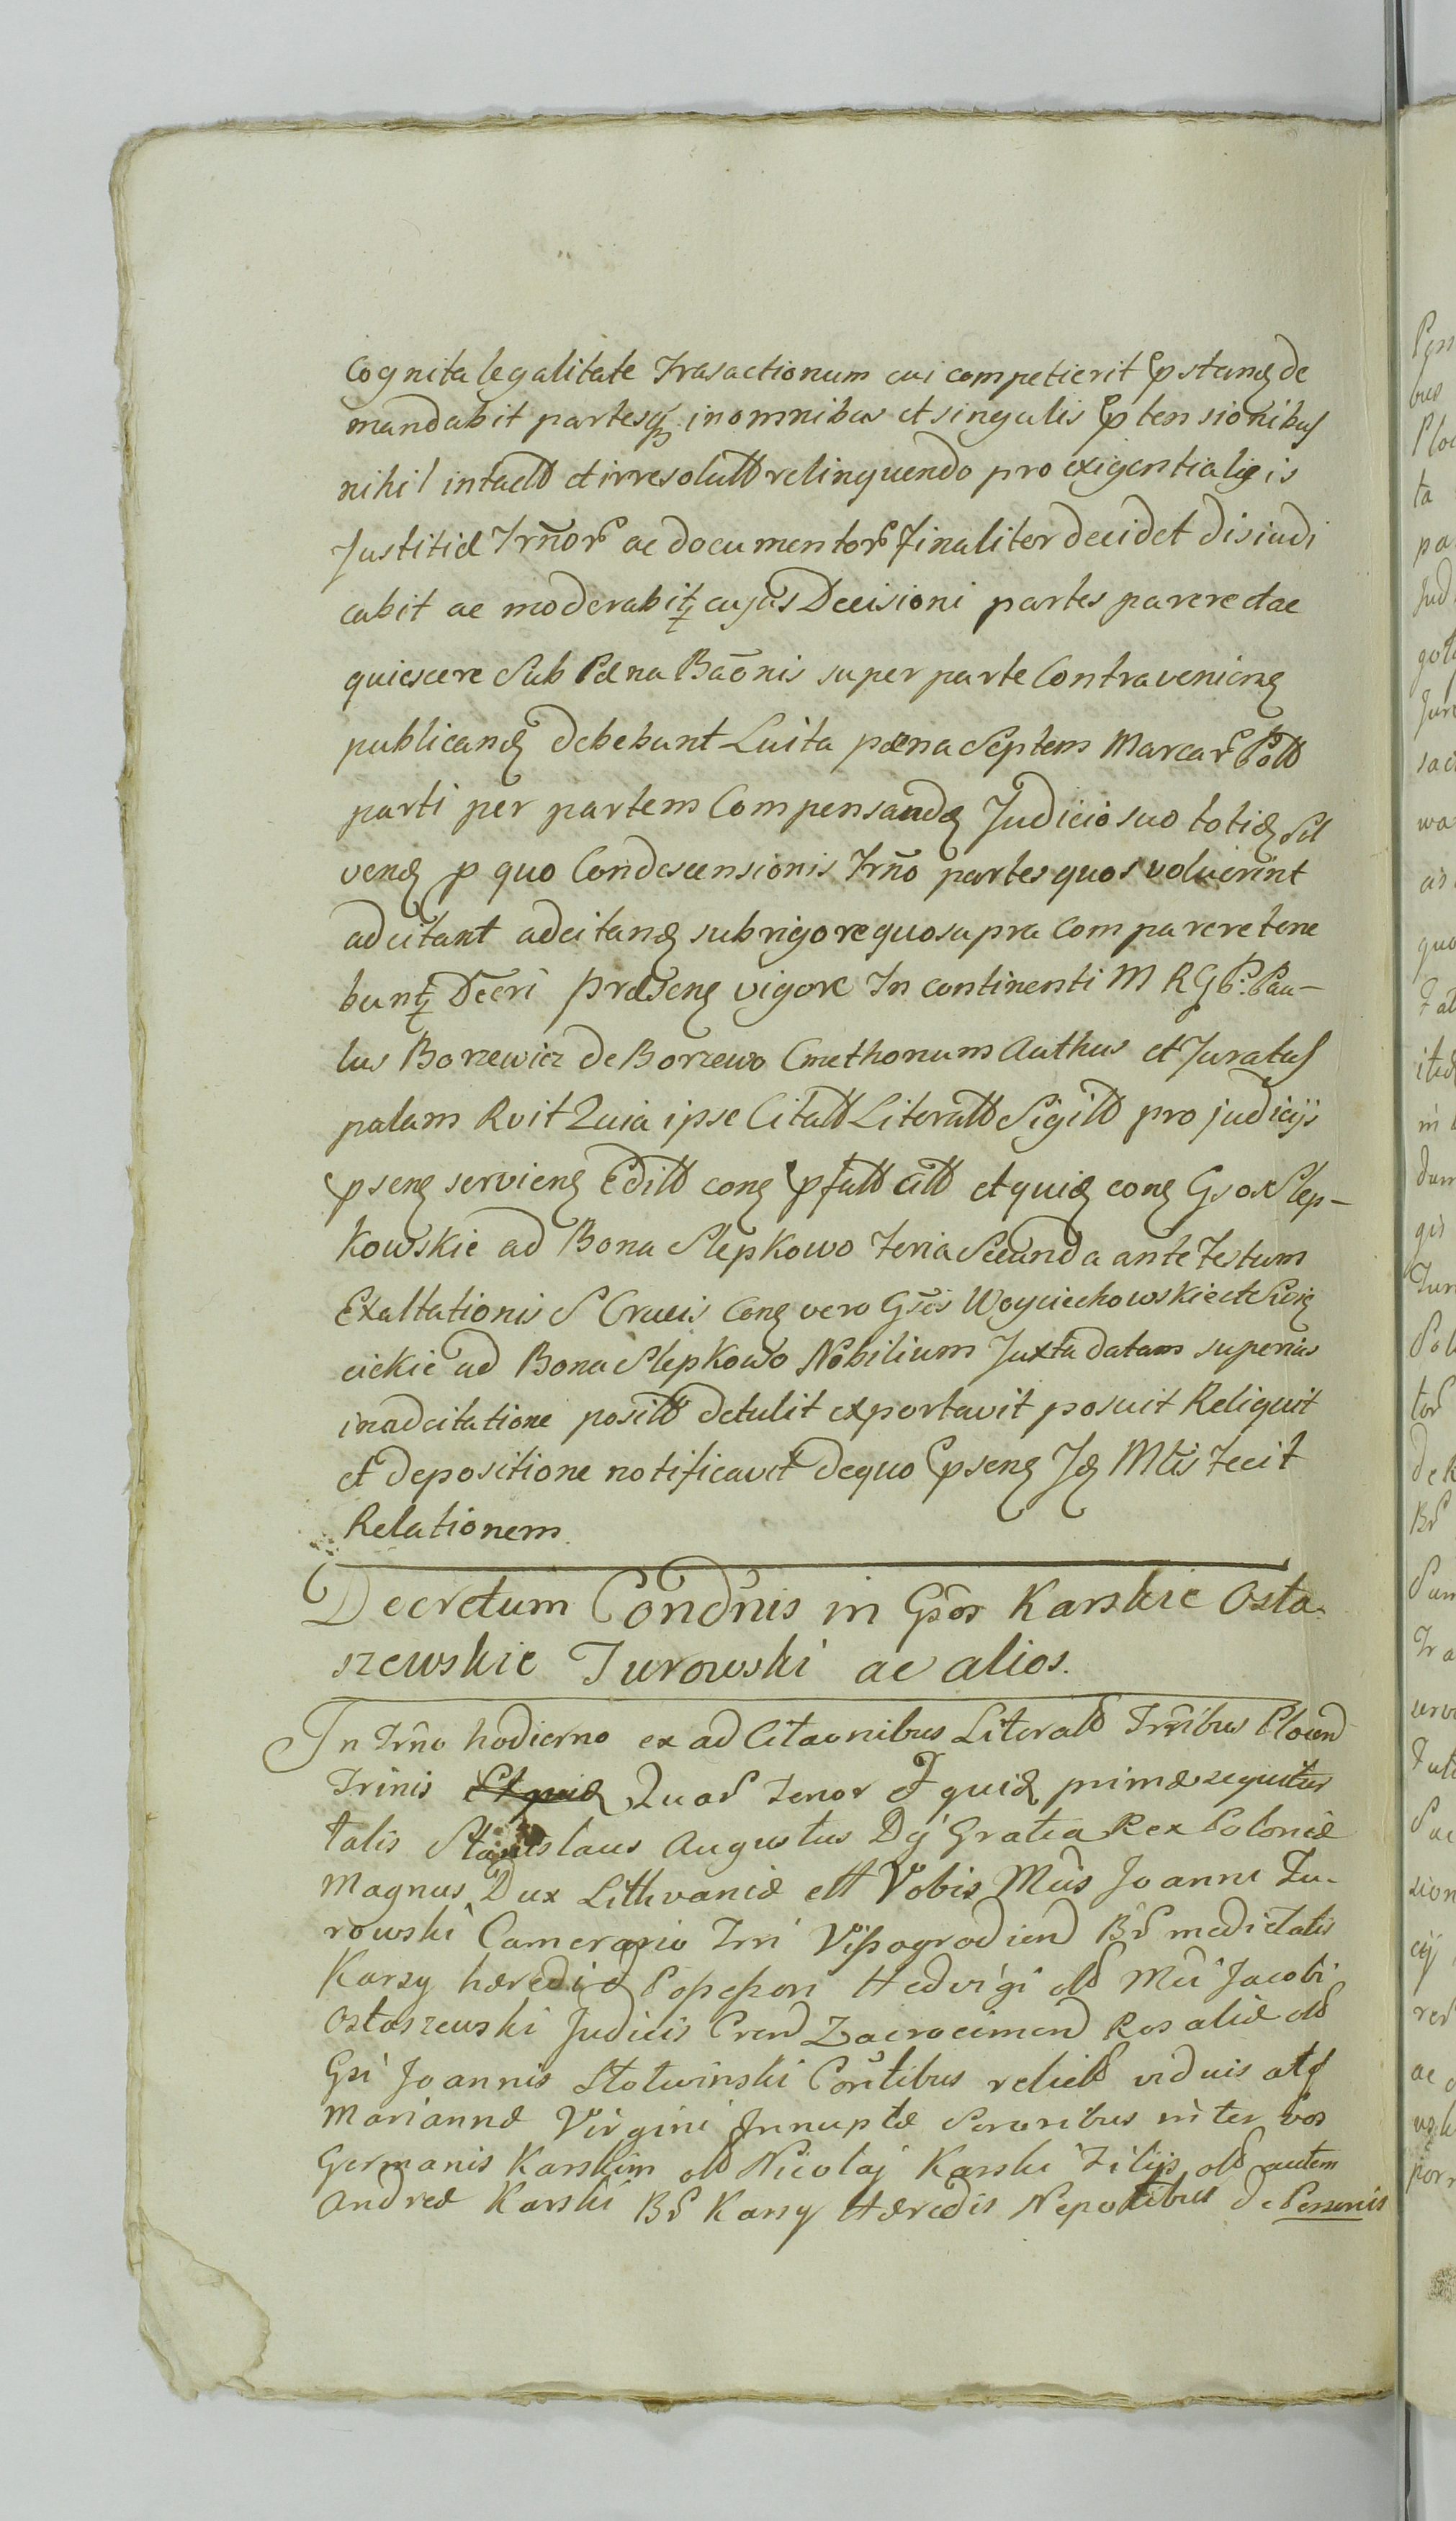 Cognita legalitate Trasactionum cui competierit pstand de
mandabit partesq in omnibus et singulis ptensionibus
nihil intactt et irresolutt relinquendo pro exigentia legis
Justitiæ Trñor ac documentor finaliter decidet disiudi
cabit ac moderabit cujus Decisioni partes parere et ac
quiescere Sub Pæna Baõnis super parte Contraven
publicand debebunt Luita pæna Septem Marcar Poll
parti per partem Compensanda Judicio suo totid Sol
vend p quo Condescensionis Trño partes quos voluerint
adcitant adcitand sub rigore quo supra comparere tene
bunt Decri præsen vigore In continenti M R G P. Pau-
lus Borzewicz de Borzewo Cmethonum Authus et Juratus
palam Rvit Quia ipse Citatt Literatt Sigitt pro judicijs
psen servien Editt con pfatt Citt et quid con Gsos Slep-
kowskie ad Bona Slepkowo Feria Secunda ante Festum
Exaltationis S Crucis Con vero Gsos Woyciechowskie et
cickie ad Bona Slepkowo Nobilium Juxta datam superius
in adcitatione positt detulit exportavit posuit Reliquit
et depositione notificavit de quo psen Jd Mtis Fecit
Relationem.
Decretum Condnis in Gsos Karskie Osta-
szewskie Turowski ac alios.
In Trño hodierno ex ad Citaonibus Literatt Trñibus Plocen
Trinis Et quid Quar Tenor Et quid primæ sequitur
talis Stanislaus Augustus Dej Gratia Rex Poloniæ
Magnus Dux Lithvaniæ ett Vobis Mcis Joanni Tu-
rowski Camerario Trri Vissogrodien Br medietatis
Karzy hæredi et Possessori Hedvigi ob Mci Jacobi
Ostaszewski Judicis Cren Zacrocimen Rosaliæ ob
Gsi Joannis Slotwinski Con̄tibus relictt viduis atq
Mariannæ Virgini Innuptæ Sororibus inter vos
Germanis Karskim ob Nicolaj Karski Filijs ob autem
Andreæ Karski Br Karzy Hæredis Nepotibus de Personis